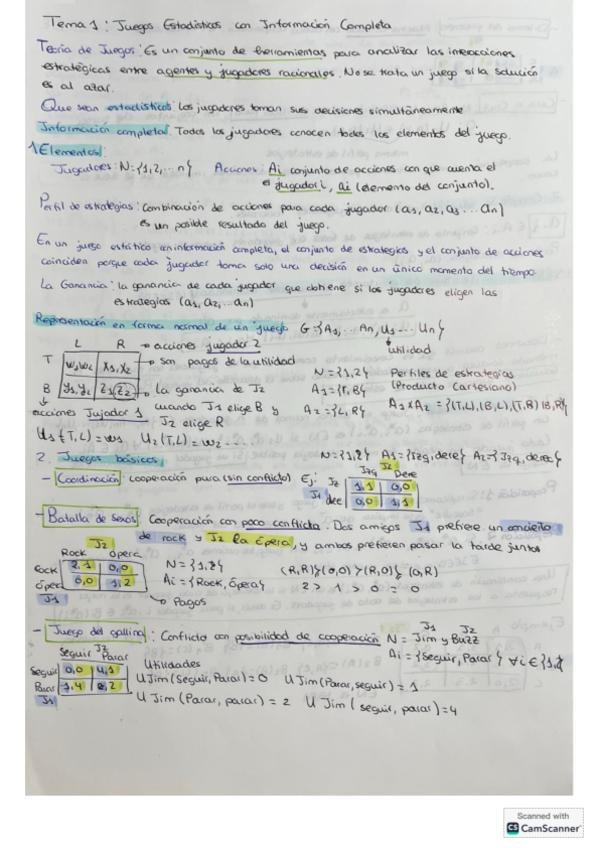 Tema 1: Juegos Estadísticos con Información Completa
Teoría de Juegos: Es un conjunto de herramientas para analizar las interacciones
estratégicas entre agentes y jugadores racionales. No se trata un juego si la solución
es al azar.
Que sean estadísticos: los jugadores toman sus decisiones simultáneamente
Información completa: Todos los jugadores conocen todos los elementos del juego.
1 Elementos:
Jugadores: N={1,2,...n} Acciones: Ai conjunto de acciones con que cuenta el
jugador i, ai (elemento del conjunto).
Perfil de estrategias: Combinación de acciones para cada jugador (a1, a2, a3... an)
es un posible resultado del juego.
En un juego estático con información completa, el conjunto de estrategias y el conjunto de acciones
coinciden porque cada jugador toma solo una decisión en un único momento del tiempo.
La Ganancia: la ganancia de cada jugador que obtiene si los jugadores eligen las
estrategias (a1, a2,...an)
Representación en forma normal de un juego G={A1,...An, U1...Un}
utilidad
L R → acciones jugador 2
T w1,w2 x1,x2 → son pagos de la utilidad N={1,2} Perfiles de estrategias
B y1,y2 z1,z2 → La ganancia de J2 A1={T,B} (Producto Cartesiano)
acciones Jujador 1 cuando J1 elige B y A2={L,R} A1xA2={(T,L),(B,L),(T,R)(B,R)}
J2 elige R
U1(T,L)=w1 U2(T,L)=w2....
2. Juegos básicos: N={1,2} A1={Izq,derec} A2={Izq,derec}
- Coordinación: cooperación pura (sin conflicto) Ej:
J2
Izq Dere
J1 Iz 1,1 0,0
dee 0,0 1,1
- Batalla de Sexos: Cooperación con poco conflicto. Dos amigos J1 prefiere un concierto
de rock y J2 la ópera, y ambos prefieren pasar la tarde juntos
J2
Rock ópera N={1,2} (R,R)>(O,O)>(R,O)=(O,R)
Rock 2,1 0,0 Ai={Rock, Ópera} 2 > 1 > 0 = 0
ópera 0,0 1,2
J1 Pagos
- Juego del gallina: Conflicto con posibilidad de cooperación N = Jim y Buzz
J1 J2
J2 Ai={Seguir, Parar} ∀ i ∈ {1,2}
Seguir Parar Utilidades
Seguir 0,0 4,1 U Jim (Seguir, Parar)=0 U Jim (Parar, seguir)=1
Parar 1,4 2,2 U Jim (Parar, parar)=2 U Jim (seguir, parar)=4
J1
Scanned with
CS CamScanner